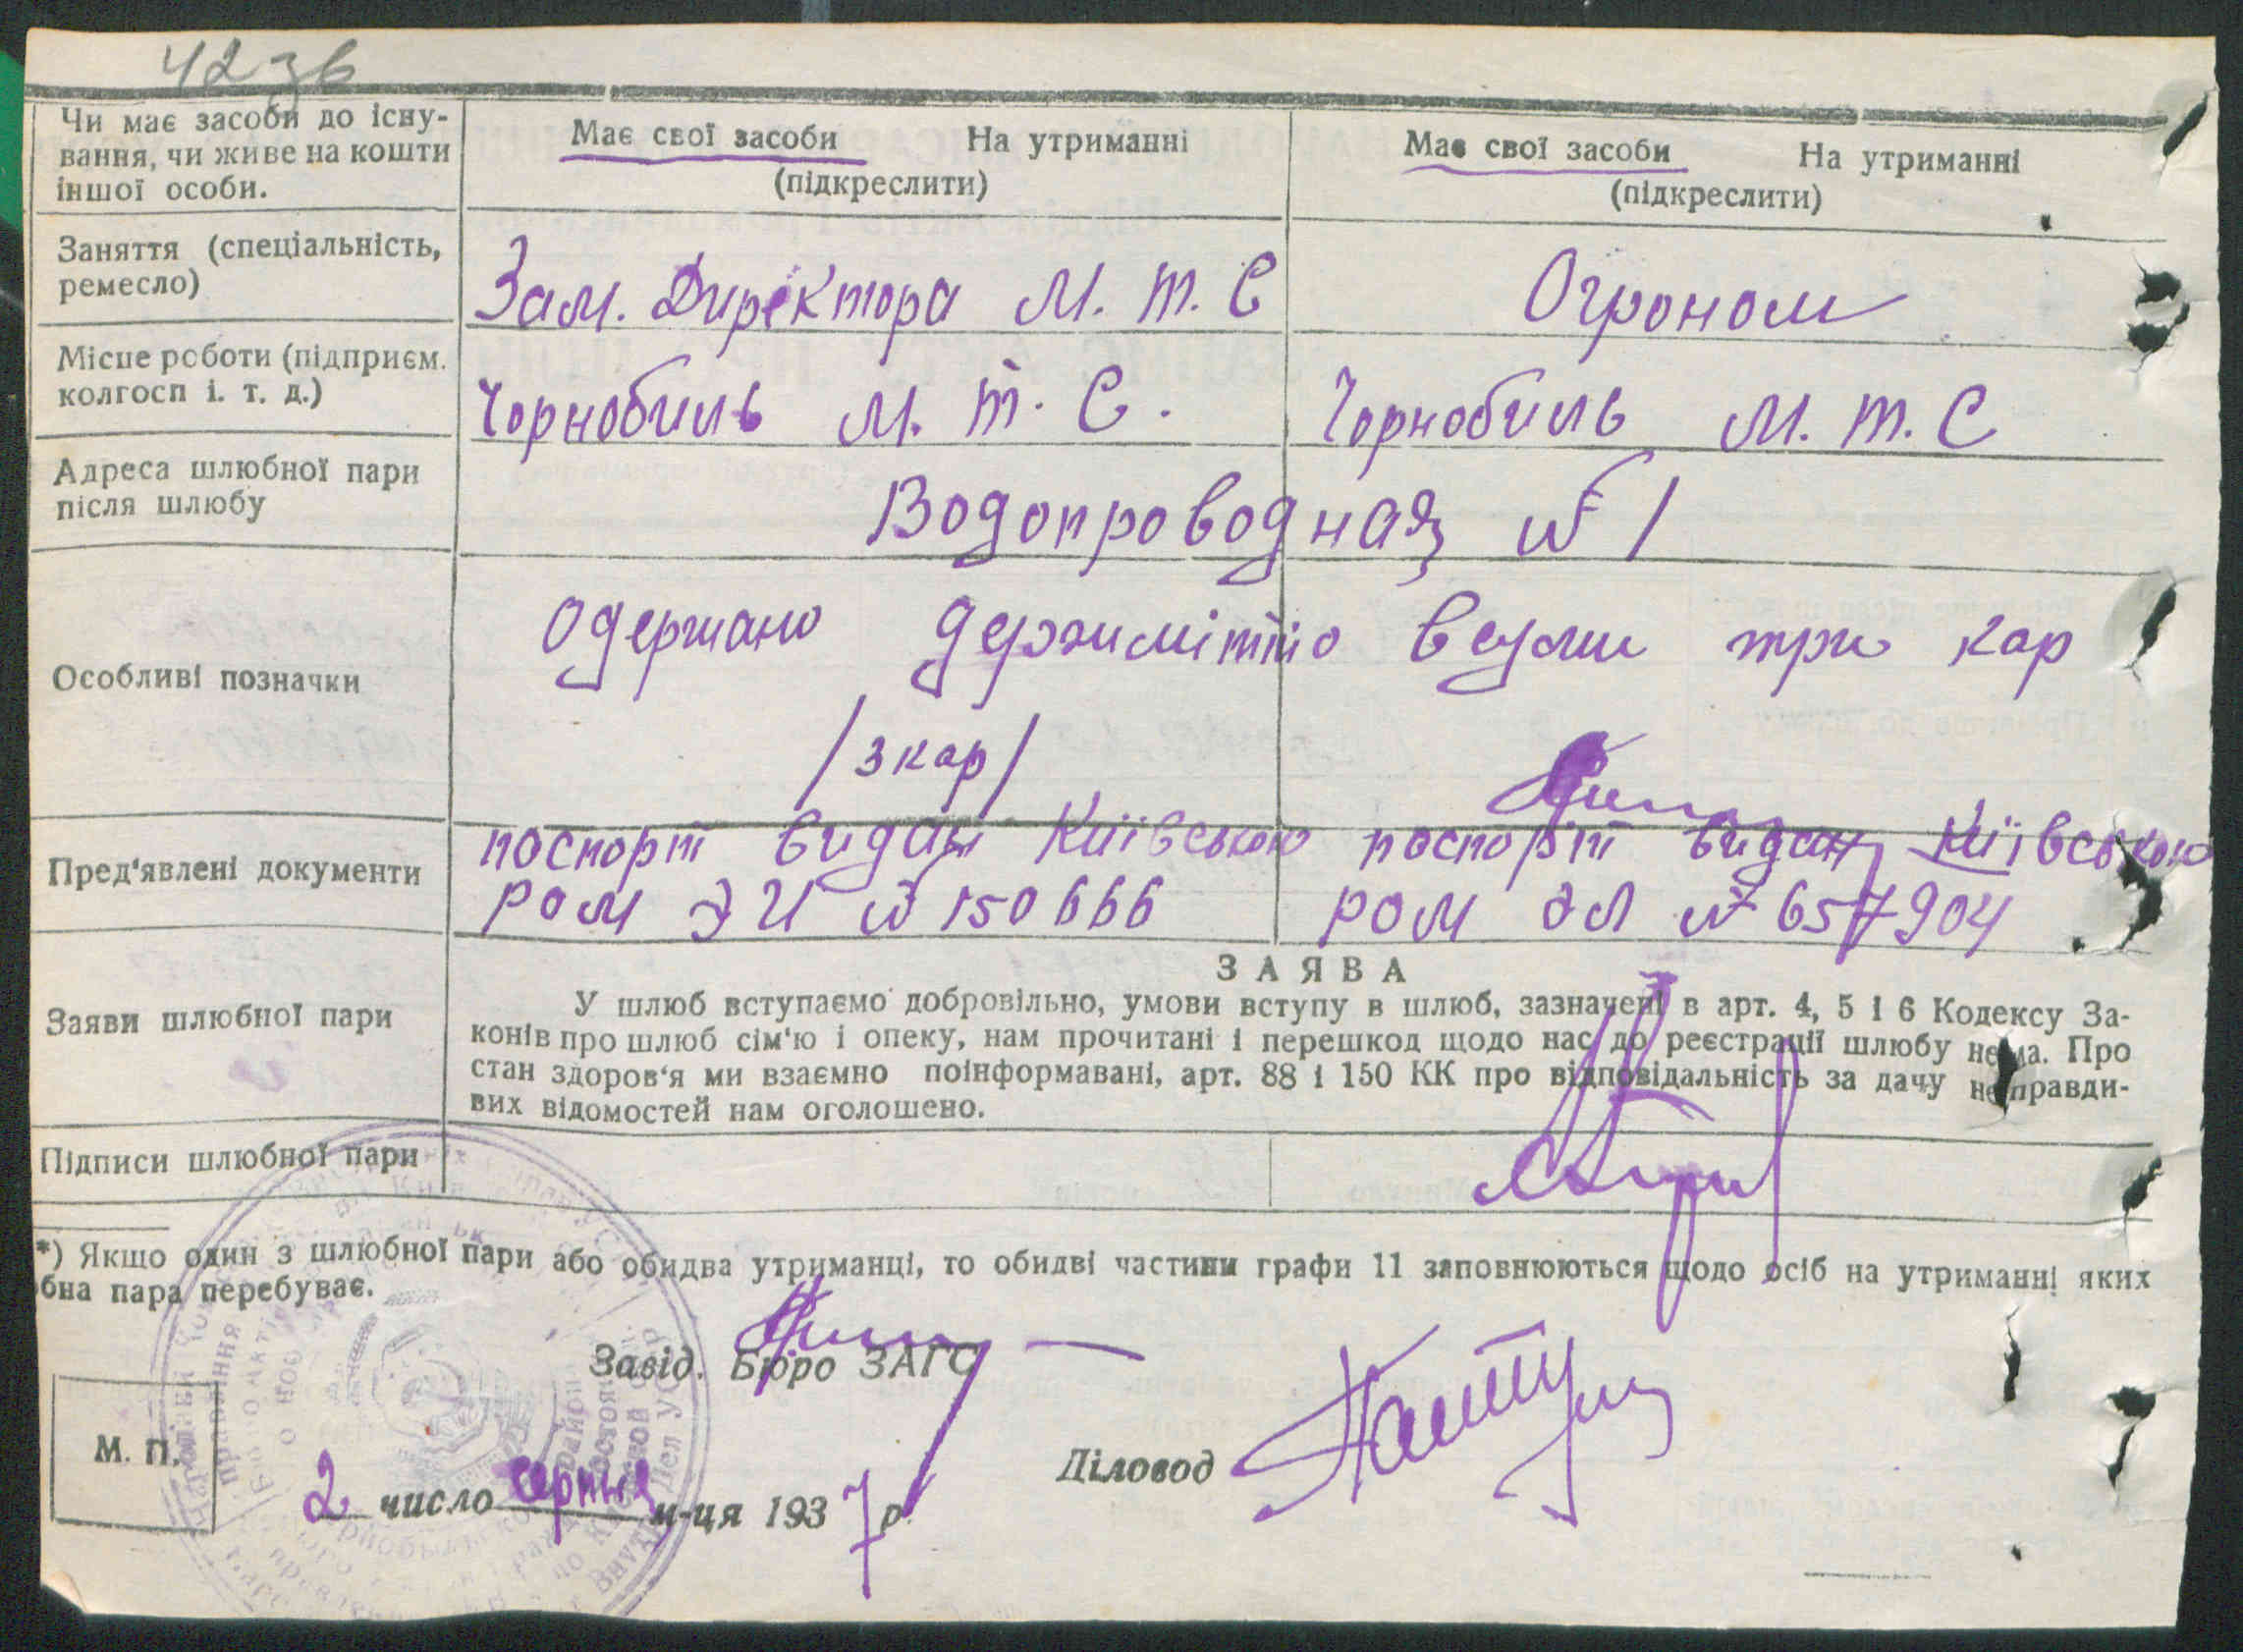 42 зв
Чи має засоби до існу-
вання, чи живе на кошти
іншої особи.
Має свої засоби На утриманні
(підкреслити)
Має свої засоби На утриманні
(підкреслити)
Заняття (спеціальність,
ремесло)
Зам. Директора М. Т. С
Огроном
Місце роботи (підприєм.
колгосп і. т. д.)
Чорнобиль М. Т. С.
Чорнобиль М. Т. С
Адреса шлюбної пари
після шлюбу
Водопроводная № 1
Особливі позначки
Одержано три кар
/3 кар/
Пред'явлені документи
паспорт видан Київською
РОМ ЭИ № 150666
паспорт видан Київською
РОМ ЭЛ № 657904
Заяви шлюбної пари
ЗАЯВА
У шлюб вступаємо добровільно, умови вступу в шлюб, зазначені в арт. 4, 5 і 6 Кодексу За-
конів про шлюб сім'ю і опеку, нам прочитані і перешкод щодо нас до реєстрації шлюбу нема. Про
стан здоров'я ми взаємно поінформавані, арт. 88 і 150 КК про відповідальність за дачу неправди-
вих відомостей нам оголошено.
Підписи шлюбної пари
*) Якщо один з шлюбної пари або обидва утриманці, то обидві частини графи 11 заповнюються щодо осіб на утриманні яких
бна пара перебуває.
Завід. Бюро ЗАГС
М. П.
Діловод
2 число серпня м-ця 1937 р.